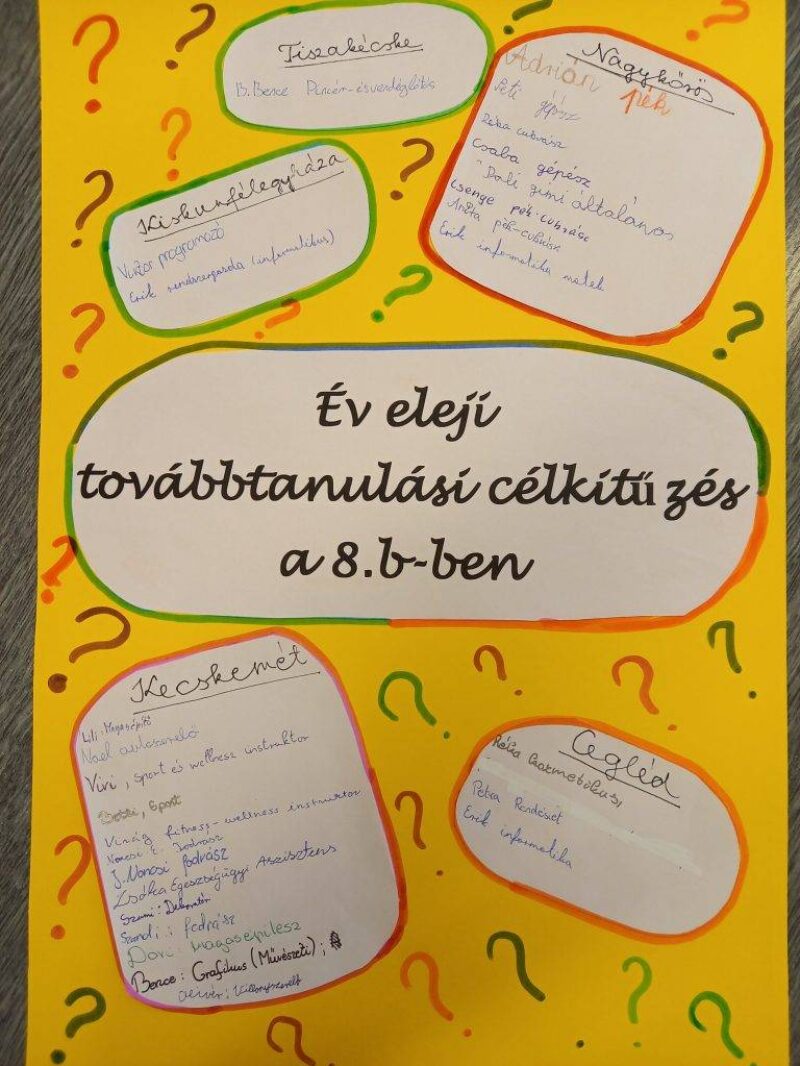 Tiszakécske
B. Bence Pincér- és vendéglátás
Nagykőrös
Adrián pék
Peti gépész
Réka cukrász
Csaba gépész
Dali gimi általános
Csenge pék-cukrász
Anita pék-cukrász
Erik informatika matek
Kiskunfélegyháza
Viktor programozó
Erik rendszergazda (informatikus)
Év eleji
továbbtanulási célkitűzés
a 8.b-ben
Kecskemét
Lili: Magasépítő
Noel autószerelő
Vivi, sport és wellness instruktor
Betti, Sport
Virág fitness-wellness instruktor
Noncsi E. fodrász
J. Noncsi fodrász
Zsóka Egészségügyi Aszisztens
Szami: Dekoratőr
Szandi: fodrász
Dori: Magasépítész
Bence: Grafikus (Művészeti);
Olivér: Villanyszerelő
Cegléd
Réka Kozmetikus,
Petra Rendészet
Erik informatika